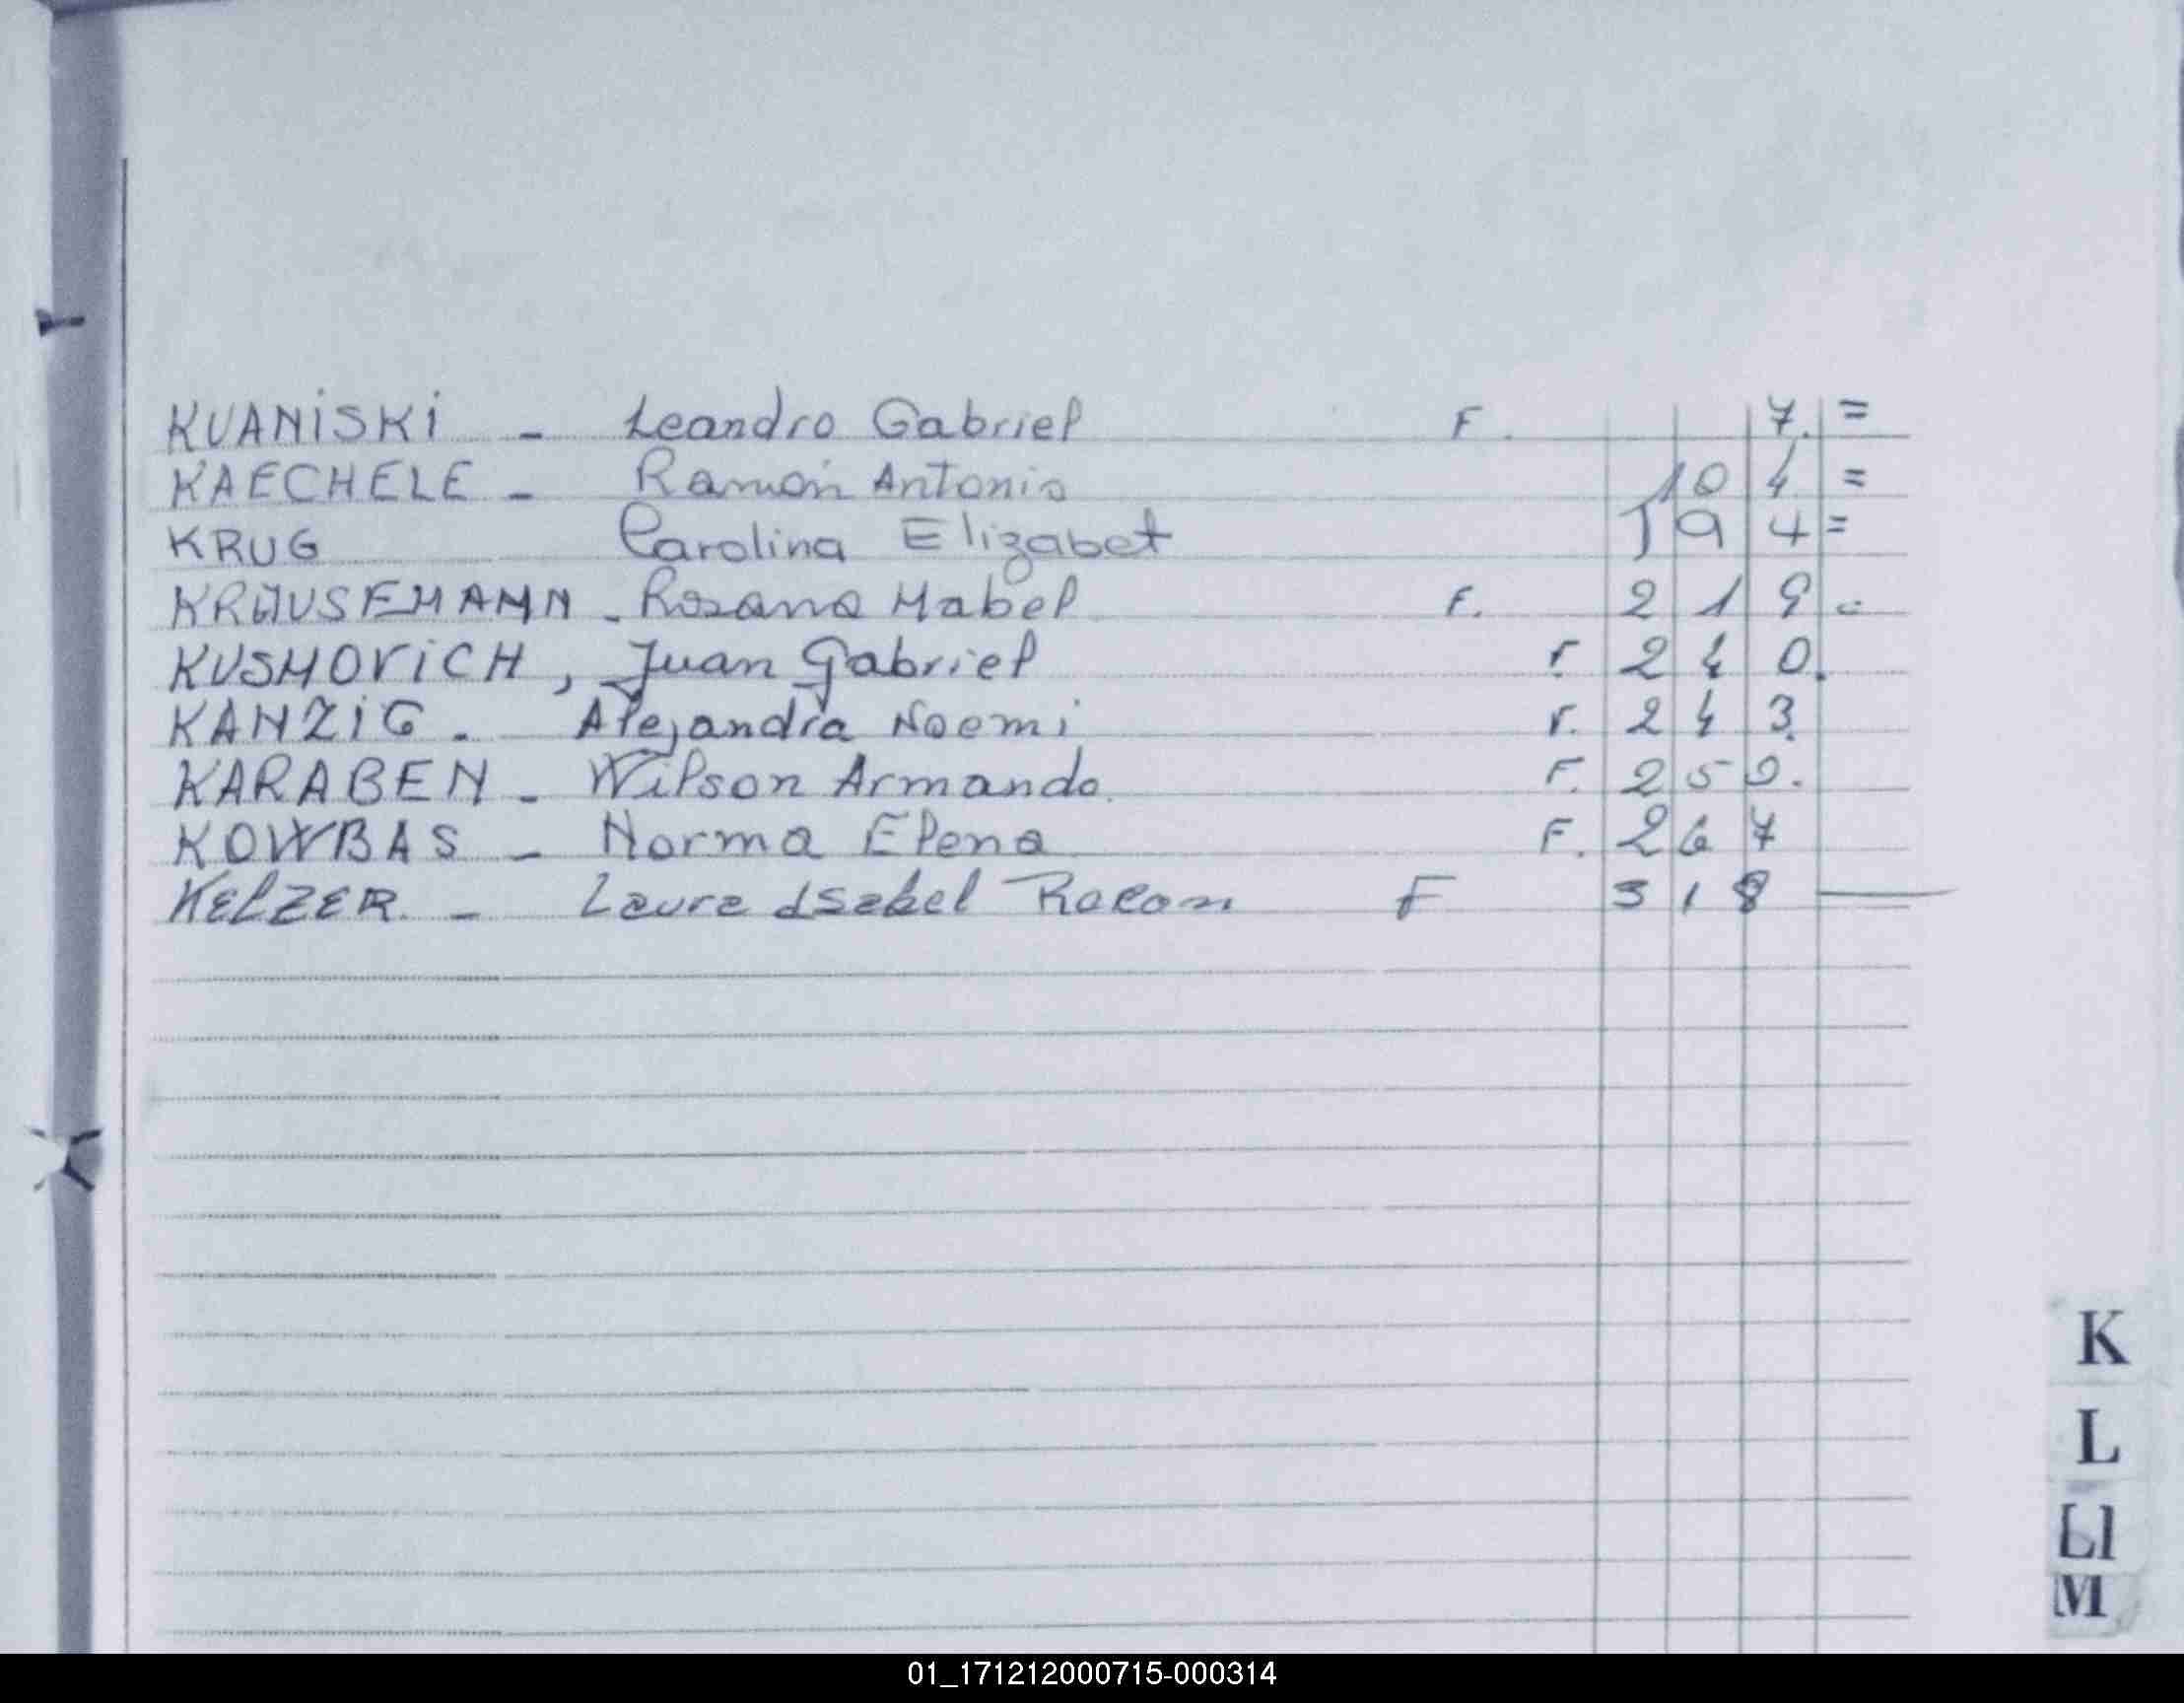 KUANiSKi - Leandro Gabriel F. 7. =
KAECHELE - Ramón Antonio 104 =
KRUG Carolina Elizabet 194 =
KRAUSEMANN - Rosana Mabel F. 219 =
KUSMOViCH, Juan Gabriel F 240.
KANZiG. Alejandra Noemi F. 243.
KARABEN - Wilson Armando. F. 250.
KOWBAS - Norma Elena F. 267
KELZER. - Laura Isabel Rolon F 318 —
K
L
Ll
M
01_171212000715-000314